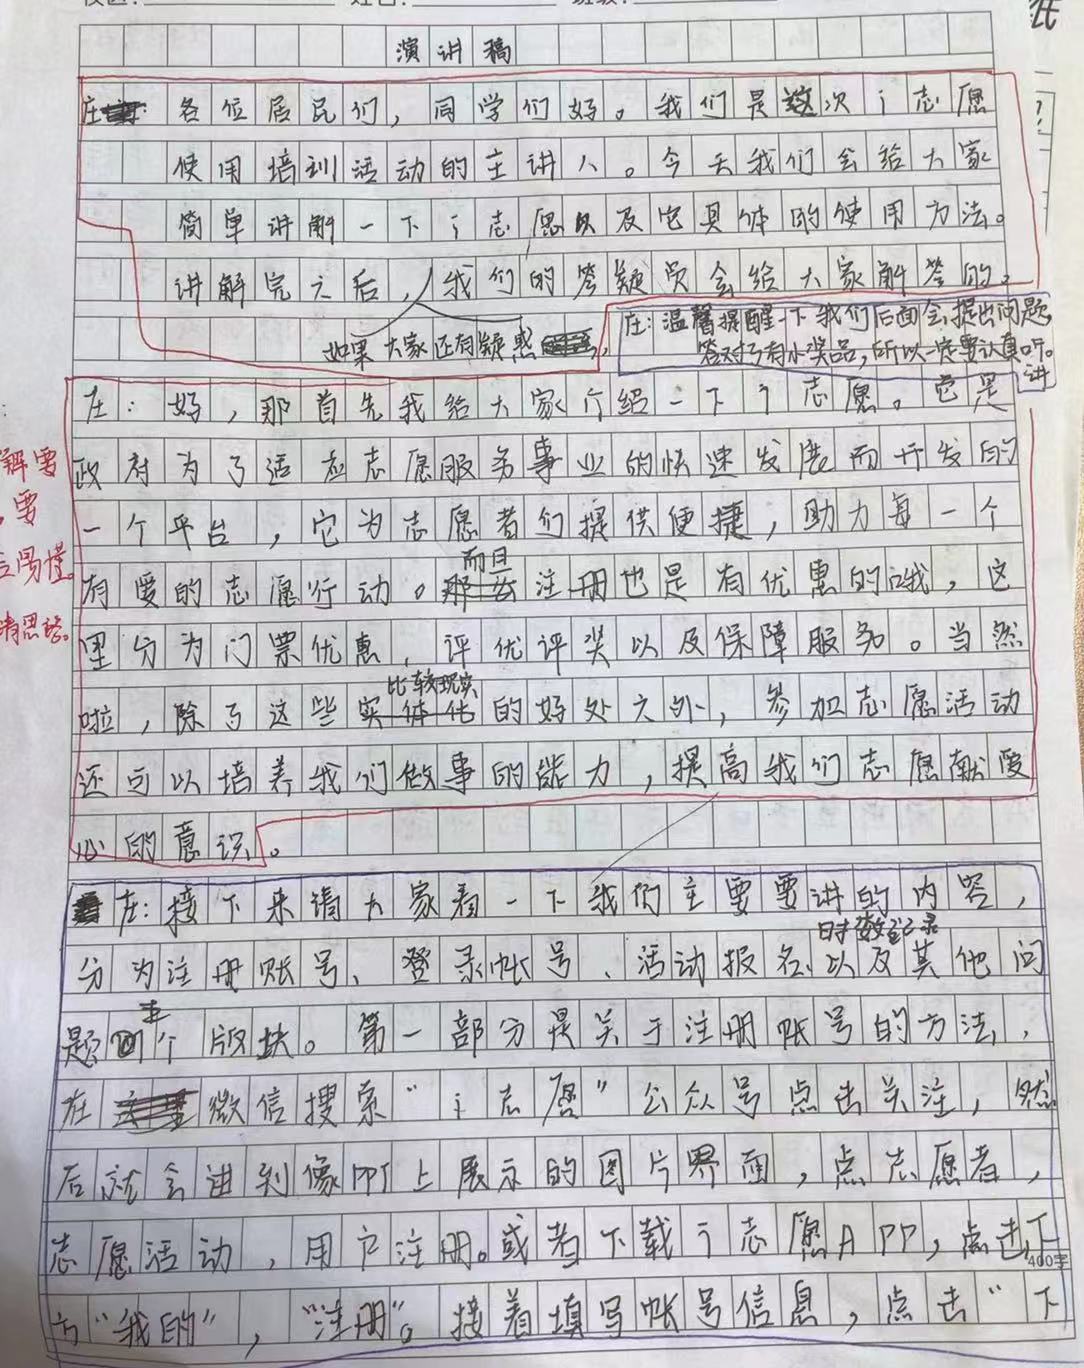 演讲稿
庄 各位居民们，同学们好。我们是这次i志愿
使用培训活动的主讲人。今天我们会给大家
简单讲解一下i志愿以及它具体的使用方法。
讲解完之后，我们的答疑员会给大家解答的。
如果大家还有疑惑，
庄：温馨提醒一下我们后面会提出问题，
答对了有小奖品，所以一定要认真听
讲。
庄：好，那首先我给大家介绍一下i志愿。它是
政府为了适应志愿服务事业的快速发展而开发的
一个平台，它为志愿者们提供便捷，助力每一个
而且
有爱的志愿行动。那么注册也是有优惠的哦，这
里分为门票优惠、评优评奖以及保障服务。当然
比较现实
啦，除了这些实体化的好处之外，参加志愿活动
还可以培养我们做事的能力，提高我们志愿献爱
心的意识。
解要
，要
易懂。
清思路。
庄：接下来请大家看一下我们主要要讲的内容，
时数记录
分为注册账号、登录帐号、活动报名、以及其他问
题个版块。第一部分是关于注册账号的方法，
在微信搜索“i志愿”公众号点击关注，然
后就会进到像PPT上展示的图片界面，点志愿者，
志愿活动，用户注册。或者下载i志愿APP，点击下
400字
方“我的”，“注册”。接着填写帐号信息，点击“下